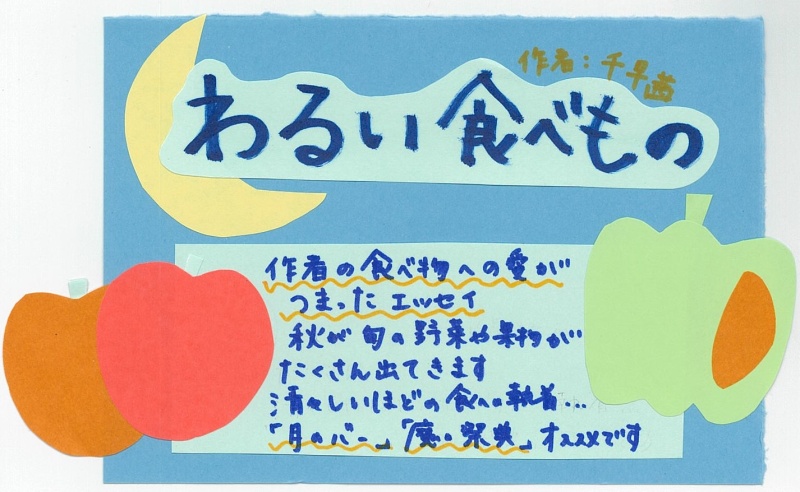 作者：千早茜
わるい食べもの
作者の食べ物への愛が
つまったエッセイ
秋が旬の野菜や果物が
たくさん出てきます
清々しいほどの食への執着…
「月のバー」「魔の祭典」オススメです